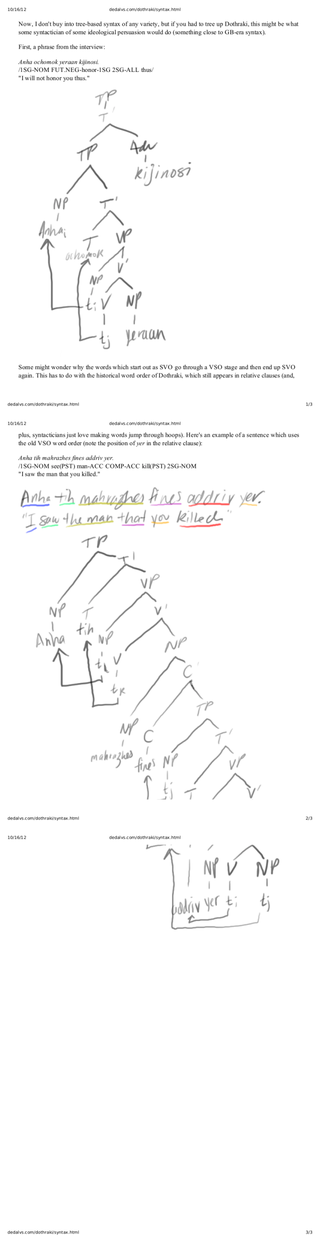 10/16/12 dedalvs.com/dothraki/syntax.html
Now, I don't buy into tree-based syntax of any variety, but if you had to tree up Dothraki, this might be what
some syntactician of some ideological persuasion would do (something close to GB-era syntax).
First, a phrase from the interview:
Anha ochomok yeraan kijinosi.
/1SG-NOM FUT.NEG-honor-1SG 2SG-ALL thus/
"I will not honor you thus."
TP
T'
TP Adv
kijinosi
NP T'
Anhai T VP
ochomok
NP V'
ti V NP
tj yeraan
Some might wonder why the words which start out as SVO go through a VSO stage and then end up SVO
again. This has to do with the historical word order of Dothraki, which still appears in relative clauses (and,
dedalvs.com/dothraki/syntax.html 1/3
10/16/12 dedalvs.com/dothraki/syntax.html
plus, syntacticians just love making words jump through hoops). Here's an example of a sentence which uses
the old VSO word order (note the position of yer in the relative clause):
Anha tih mahrazhes fines addriv yer.
/1SG-NOM see(PST) man-ACC COMP-ACC kill(PST) 2SG-NOM
"I saw the man that you killed."
Anha tih mahrazhes fines addriv yer.
"I saw the man that you killed."
TP
T'
VP
NP T V'
Anha tih NP
NP
V
tk
C'
TP
NP C T'
mahrazhes fines NP VP
tj T V'
dedalvs.com/dothraki/syntax.html 2/3
10/16/12 dedalvs.com/dothraki/syntax.html
NP V NP
addriv yer ti tj
dedalvs.com/dothraki/syntax.html 3/3